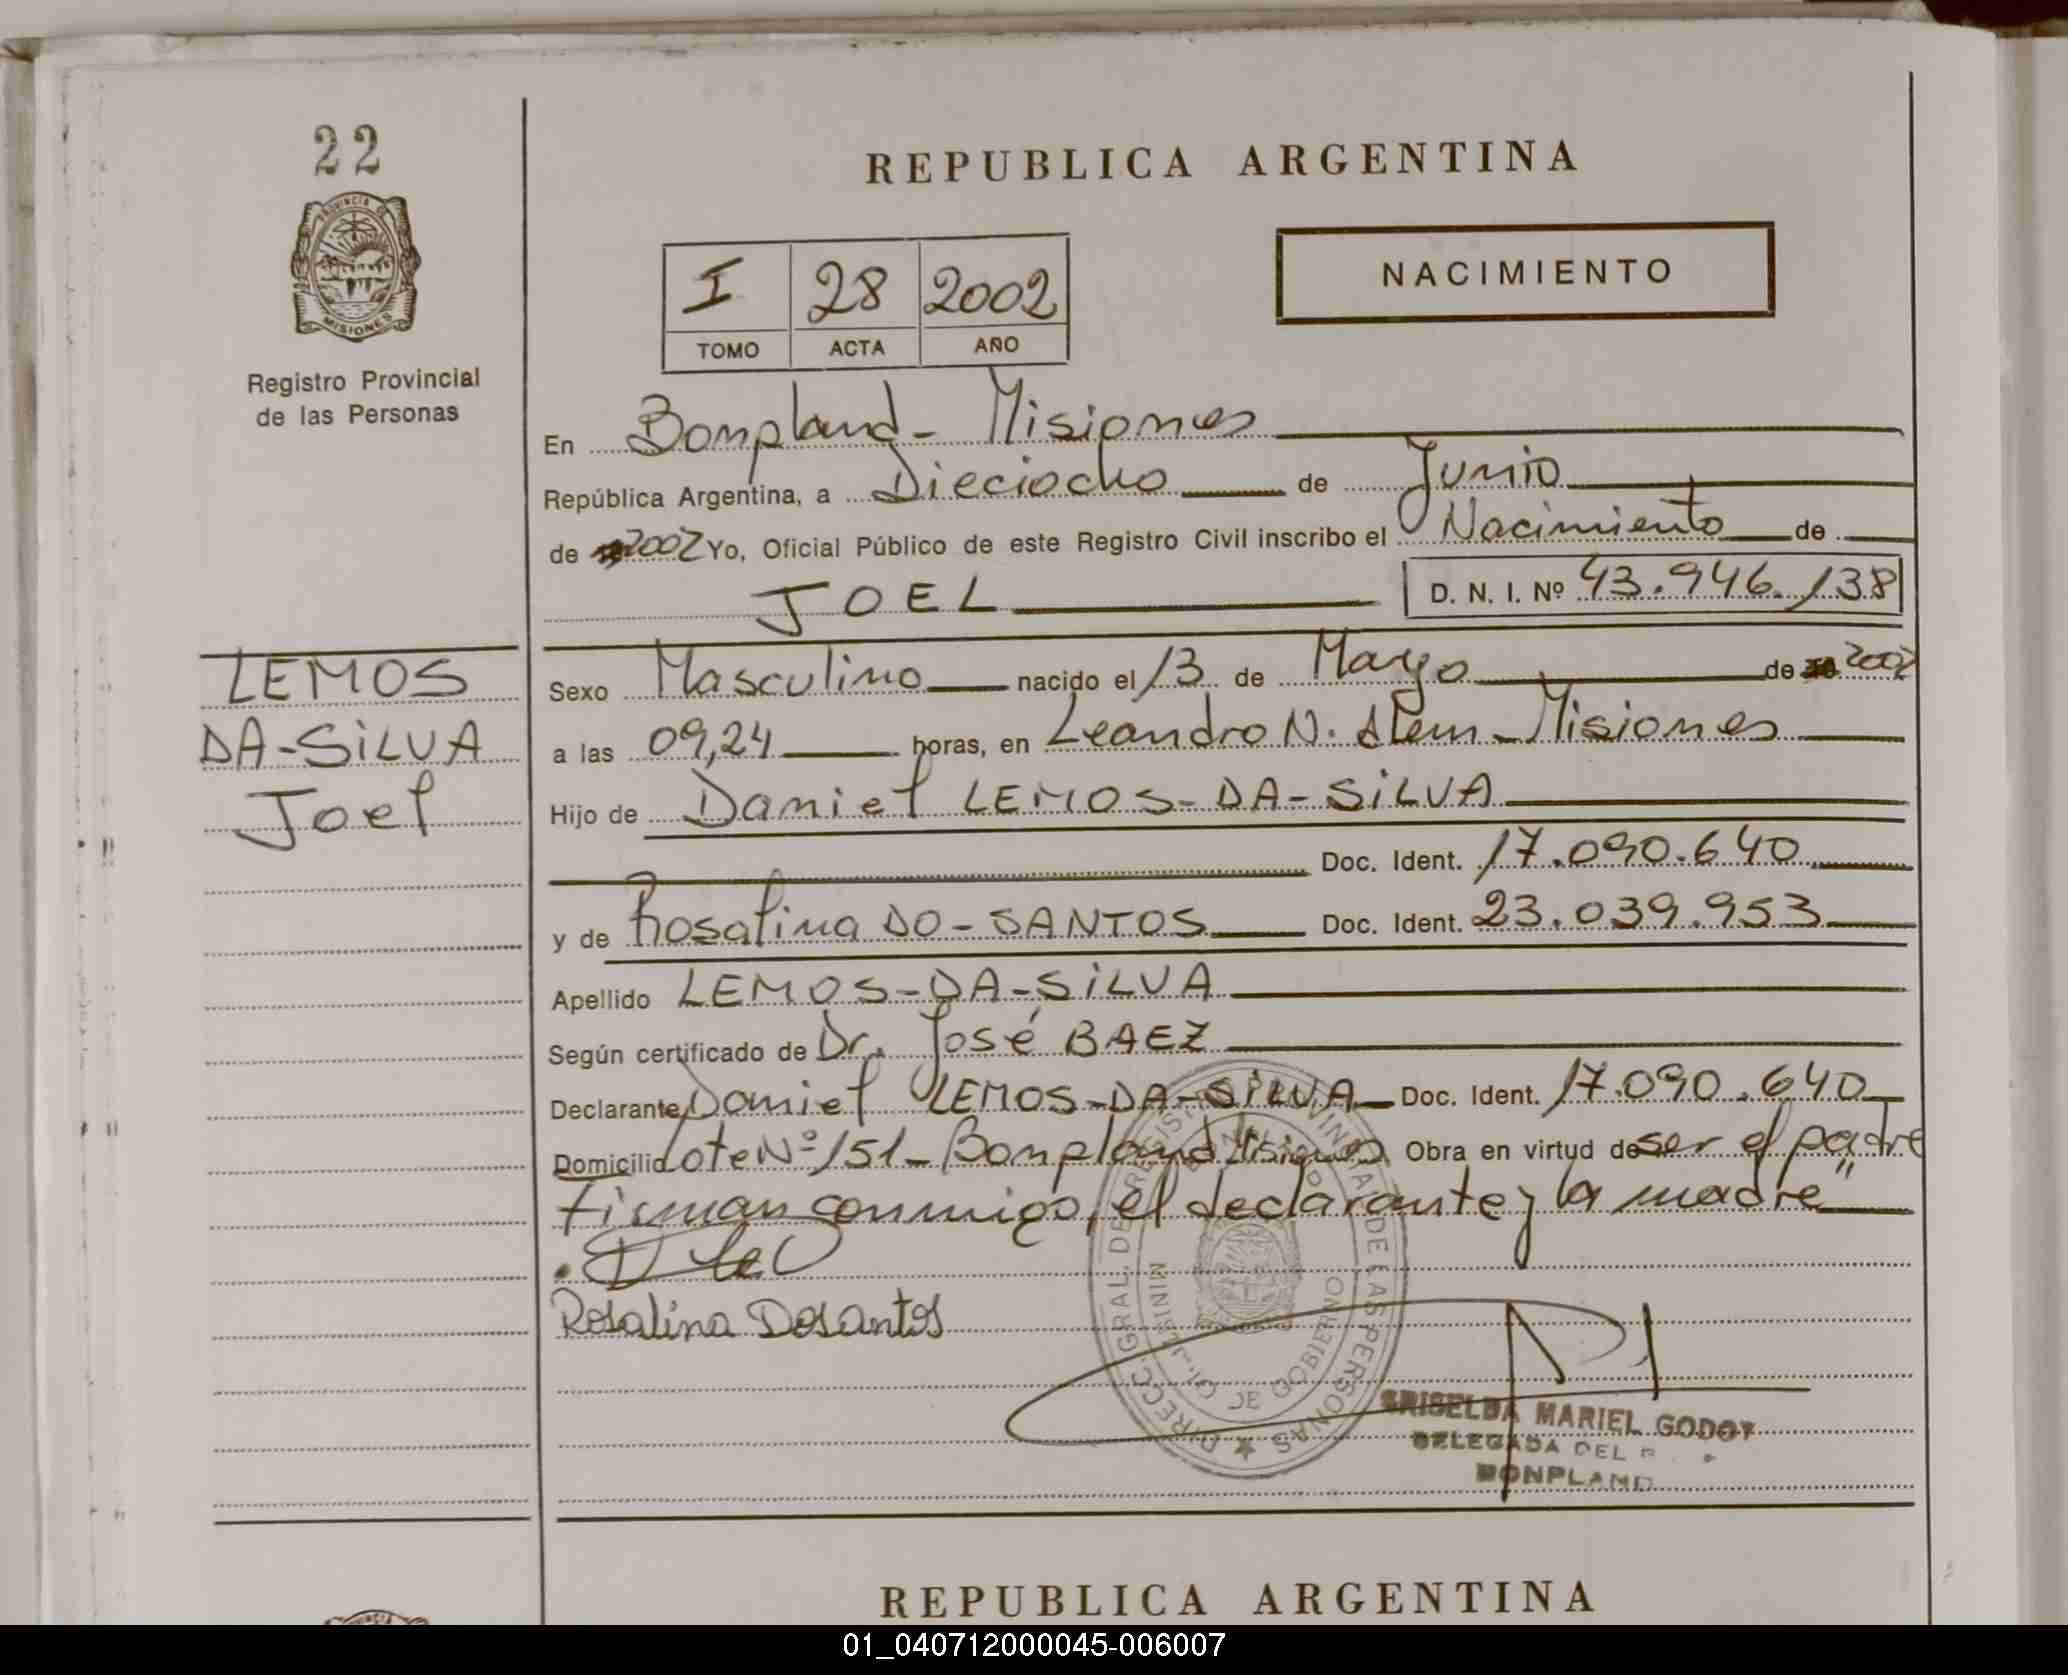 22
PROVINCIA DE
MISIONES
Registro Provincial
de las Personas
REPUBLICA ARGENTINA
NACIMIENTO
I 28 2002
TOMO ACTA AÑO
En Bompland - Misiones
República Argentina, a Dieciocho de Junio
de 2002 Yo, Oficial Público de este Registro Civil inscribo el Nacimiento de
JOEL D. N. I. Nº 43.946.138
LEMOS
DA-SiLVA
Joel
Sexo Masculino nacido el 13 de Mayo de 2002
a las 09,24 horas, en Leandro N. Alem - Misiones
Hijo de Daniel LEMOS-DA-SiLVA
Doc. Ident. 17.090.640
y de Rosalina DO-SANTOS Doc. Ident. 23.039.953
Apellido LEMOS-DA-SiLVA
Según certificado de Dr. José BAEZ
Declarante Daniel LEMOS-DA-SiLVA Doc. Ident. 17.090.640
Domicilio Lote Nº 151 - Bompland Misiones Obra en virtud de ser el padre
firman conmigo, el declarante y la madre"
Rosalina Dosantos
DIRECC. GRAL. DE REGISTRO PROVINCIAL DE LAS PERSONAS
DE GOBIERNO
GRISELDA MARIEL GODOY
DELEGADA DEL R
BONPLAND
REPUBLICA ARGENTINA
01_040712000045-006007